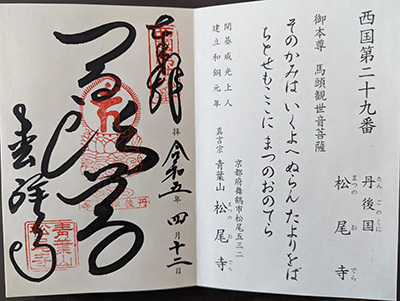 西国第二十九番
たん ごの くに
丹後国
まつの お でら
松尾寺
御本尊 馬頭観世音菩薩
そのかみは いくよへぬらん たよりをば
ちとせもこゝに まつのおのてら
開基威光上人
建立和銅元年
京都府舞鶴市松尾五三二
まつの お でら
真言宗 青葉山 松尾寺
奉拝
拝 令和五年四月十二日
青葉山
松尾寺